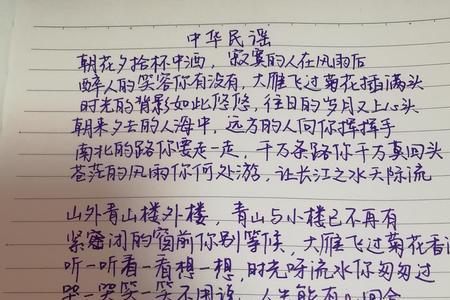 中华民谣
朝花夕拾杯中酒，寂寞的人在风雨后
醉人的笑容你有没有，大雁飞过菊花插满头
时光的背影如此悠悠，往日的岁月又上心头
朝来夕去的人海中，远方的人向你挥挥手
南北的路你要走一走，千万条路你千万莫回头
苍茫的风雨你何处游，让长江之水天际流
山外青山楼外楼，青山与小楼已不再有
紧密闭的窗前你别等候，大雁飞过菊花香
听一听看一看想一想，时光呀流水你匆匆过
哭一哭笑一笑不用说，人生能有几回合